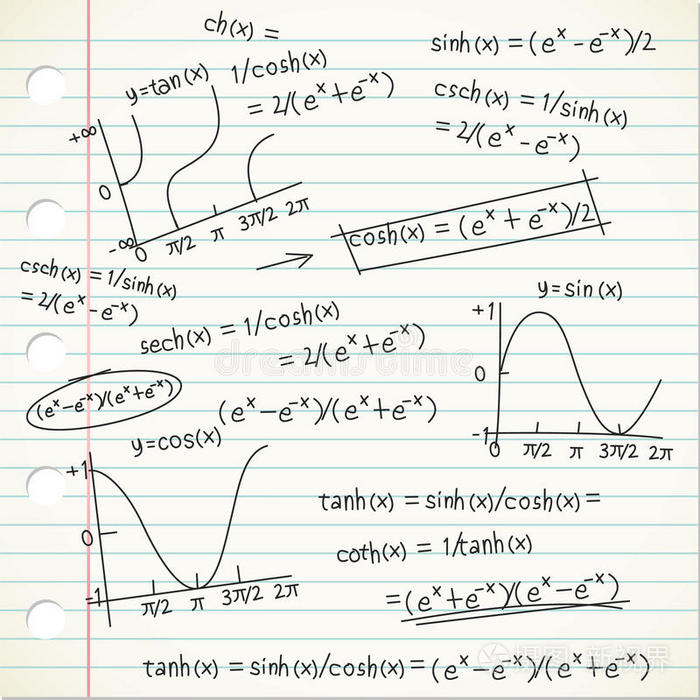 ch(x) =
1/cosh(x)
= 2/(eˣ+e⁻ˣ)
sinh(x) = (eˣ - e⁻ˣ)/2
csch(x) = 1/sinh(x)
= 2/(eˣ - e⁻ˣ)
y=tan(x)
+∞
0
-∞
0 π/2 π 3π/2 2π
cosh(x) = (eˣ + e⁻ˣ)/2
csch(x) = 1/sinh(x)
= 2/(eˣ - e⁻ˣ)
sech(x) = 1/cosh(x)
= 2/(eˣ+e⁻ˣ)
y=sin(x)
+1
0
-1
0 π/2 π 3π/2 2π
(eˣ-e⁻ˣ)/(eˣ+e⁻ˣ)
(eˣ-e⁻ˣ)/(eˣ+e⁻ˣ)
y=cos(x)
+1
0
-1
π/2 π 3π/2 2π
tanh(x) = sinh(x)/cosh(x)=
coth(x) = 1/tanh(x)
=(eˣ+e⁻ˣ)/(eˣ-e⁻ˣ)
tanh(x) = sinh(x)/cosh(x)= (eˣ-e⁻ˣ)/(eˣ+e⁻ˣ)
dreamstime
摄图·新视界